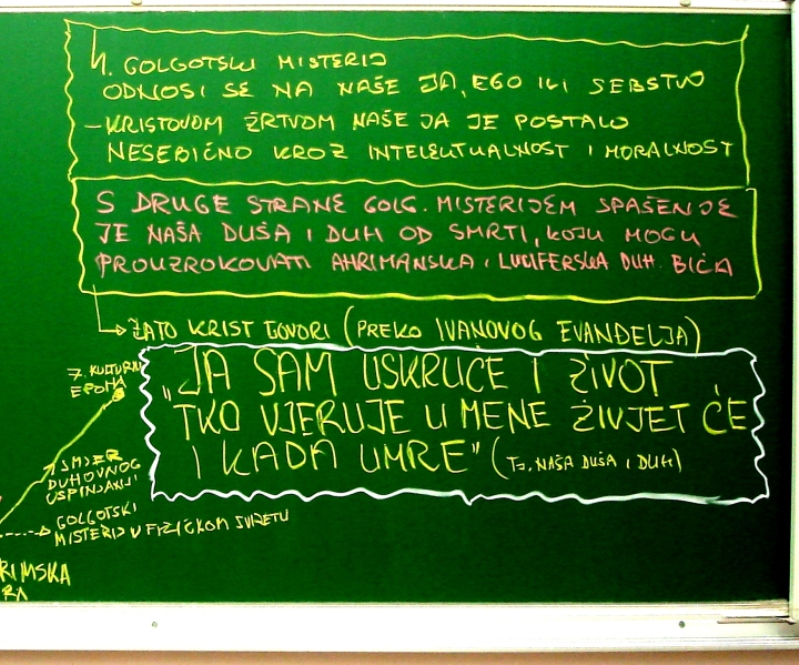 4. GOLGOTSKI MISTERIJ
ODNOSI SE NA NAŠE JA, EGO ILI SEBSTVO
– KRISTOVOM ŽRTVOM NAŠE JA JE POSTALO
NESEBIČNO KROZ INTELEKTUALNOST I MORALNOST
S DRUGE STRANE GOLG. MISTERIJEM SPAŠENJE
JE NAŠA DUŠA I DUH OD SMRTI, KOJU MOGU
PROUZROKOVATI AHRIMANSKA I LUCIFERSKA DUH. BIĆA
ZATO KRIST GOVORI (PREKO IVANOVOG EVANĐELJA)
„JA SAM USKRUĆE I ŽIVOT
TKO VJERUJE U MENE ŽIVJET ĆE
I KADA UMRE" (TJ. NAŠA DUŠA I DUH)
7. KULTURNA
EPOHA
SMJER
DUHOVNOG
USPINJANJA
GOLGOTSKI
MISTERIJ U FIZIČKOM SVIJETU
RIMSKA
RA